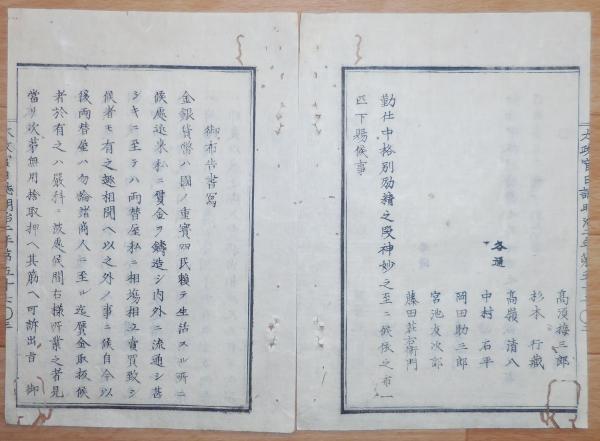 太政官日誌明治二年第五十七〇三
高須梅三郎
杉本行藏
高嶺清八
中村石平
岡田助三郎
宮池友次郎
藤田莊右衛門
各通
勤仕中格別勵精之段神妙之至ニ候依之布一
匹下賜候事
御布告書寫
金銀貨幣ハ國ノ重寶四民賴テ生活スル所ニ
候處近来私ニ贋金ヲ鑄造シ内外ニ流通シ甚
シキニ至テハ両替屋私ニ相塲相立賣買致シ
候者モ有之趣相聞ヘ以之外ノ事ニ候自今以
後両替屋ハ勿論諸商人ニ至ル迄贋金取扱候
者於有之ハ嚴科ニ被處候間右様所業之者見
當リ次第無用捨取押ヘ其筋ヘ可訴出旨 御
太政官日誌明治二年第五十七〇三